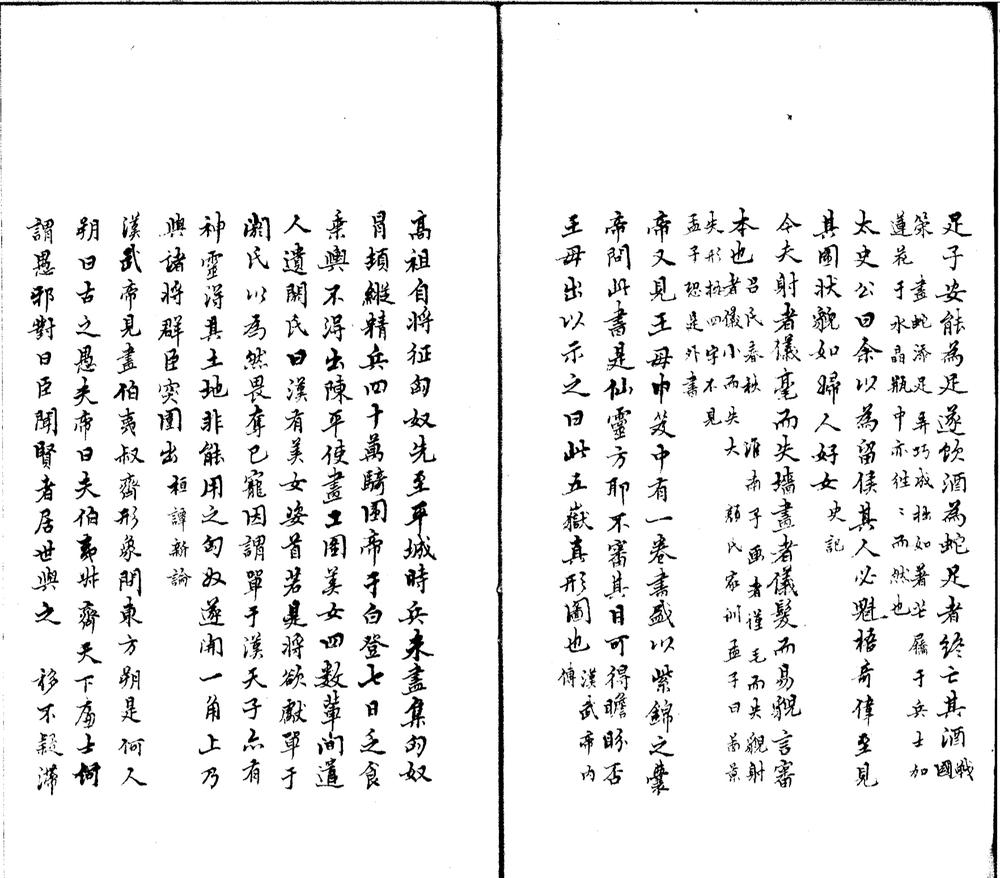 足子安能為足遂飲酒為蛇足者終亡其酒 戰國
策 畫蛇添足弄巧成拙如著芒屩于兵士加
蓮花于水晶瓶中亦徃〻而然也
太史公曰余以為留侯其人必魁梧奇偉至見
其圖狀貌如婦人好女 史記
今夫射者儀毫而失墻畫者儀髮而易貌言審
本也 呂氏春秋 淮南子画者謹毛而失貌射
者儀小而失大 顏氏家訓孟子曰啚景
失形拉四字不見
孟子恐是外書
帝又見王母巾笈中有一卷書盛以紫錦之囊
帝問此書是仙靈方耶不審其目可得瞻盼否
王母出以示之曰此五嶽真形圖也 漢武帝內
傳
高祖自將征匈奴先至平城時兵未盡集匈奴
冒頓縱精兵四十萬騎圍帝于白登七日乏食
乘輿不得出陳平使畫工圖美女四數輩间遣
人遺閼氏曰漢有美女姿首若是將欲獻單于
閼氏以為然畏奪已寵因謂單于漢天子亦有
神靈得其土地非能用之匈奴遂開一角上乃
與諸將群臣突圍出 桓譚新論
漢武帝見畫伯夷叔齊形象問東方朔是何人
朔曰古之愚夫帝曰夫伯夷叔齊天下廉士何
謂愚邪對曰臣聞賢者居世與之 移不凝滯